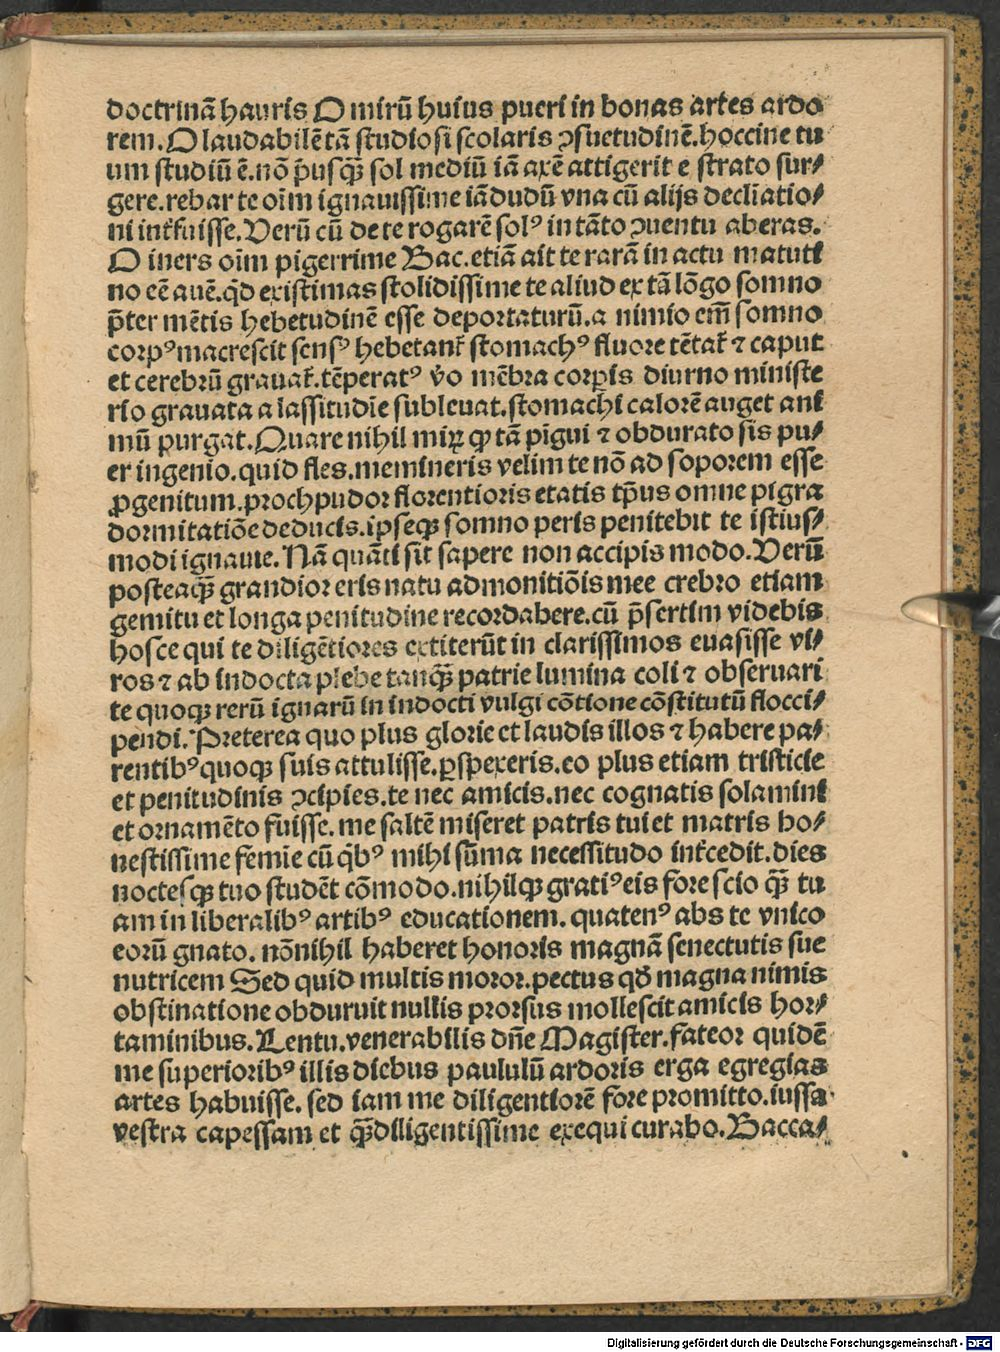 doctrinā hauris O mirū huius pueri in bonas artes ardo
rem. O laudabilē tā studiosi scolaris ↄsuetudinē. hoccine tu
um studiū ē. nō p̄usq̄ꝫ sol mediū iā axē attigerit e strato sur⸗
gere. rebar te oīm ignauissime iādudū vna cū alijs decliatio⸗
ni int̄fuisse. Verū cū de te rogarē solꝰ in tāto ↄuentu aberas.
O iners oīm pigerrime Bac. etiā ait te rarā in actu matuti
no eē auē. qd̄ existimas stolidissime te aliud ex tā lōgo somno
p̄ter mētis hebetudinē esse deportaturū. a nimio em̄ somno
corpꝰ macrescit sensꝰ hebetant̄ stomachꝰ fluore tētat̄ ⁊ caput
et cerebrū grauat̄. tēperatꝰ v̄o mēbra corꝑis diurno ministe
rio grauata a lassitudīe subleuat. stomachi calorē auget ani
mū purgat. Quare nihil miꝝ ꝙ tā pigui ⁊ obdurato sis pu⸗
er ingenio. quid fles. memineris velim te nō ad soporem esse
ꝓgenitum. proch pudor florentioris etatis tp̄us omne pigra
dormitatiōe deducis. ip̄seqꝫ somno peris penitebit te istius⸗
modi ignauie. Nā quāti sit sapere non accipis modo. Verū
posteaq̄ꝫ grandior eris natu admonitiōis mee crebro etiam
gemitu et longa penitudine recordabere. cū p̄sertim videbis
hosce qui te diligētiores extiterūt in clarissimos euasisse vi⸗
ros ⁊ ab indocta plebe tanq̄ꝫ patrie lumina coli ⁊ obseruari
te quoqꝫ rerū ignarū in indocti vulgi cōtione cōstitutū flocci⸗
pendi. Preterea quo plus glorie et laudis illos ⁊ habere pa⸗
rentibꝰ quoqꝫ suis attulisse. ꝑspexeris. eo plus etiam tristicie
et penitudinis ↄcipies. te nec amicis. nec cognatis solamini
et ornamēto fuisse. me saltē miseret patris tui et matris ho⸗
nestissime femīe cū qͥbꝰ mihi sūma necessitudo int̄cedit. dies
noctesqꝫ tuo studēt cōmodo. nihilqꝫ gratiꝰ eis fore scio q̄ꝫ tu
am in liberalibꝰ artibꝰ educationem. quatenꝰ abs te vnico
eorū gnato. nōnihil haberet honoris magnā senectutis sue
nutricem Sed quid multis moror. pectus qd̄ magna nimis
obstinatione obduruit nullis prorsus mollescit amicis hor⸗
taminibus. Lentu. venerabilis dn̄e Magister. fateor quidē
me superioribꝰ illis diebus paululū ardoris erga egregias
artes habuisse. sed iam me diligentiorē fore promitto. iussa
vestra capessam et q̄ꝫdiligentissime exequi curabo. Bacca⸗
Digitalisierung gefördert durch die Deutsche Forschungsgemeinschaft - DFG